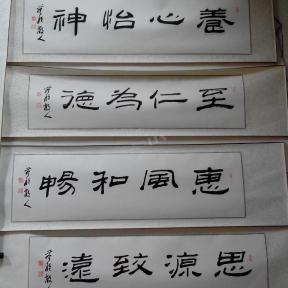 養心怡神
至仁為德
惠風和暢
思源致遠